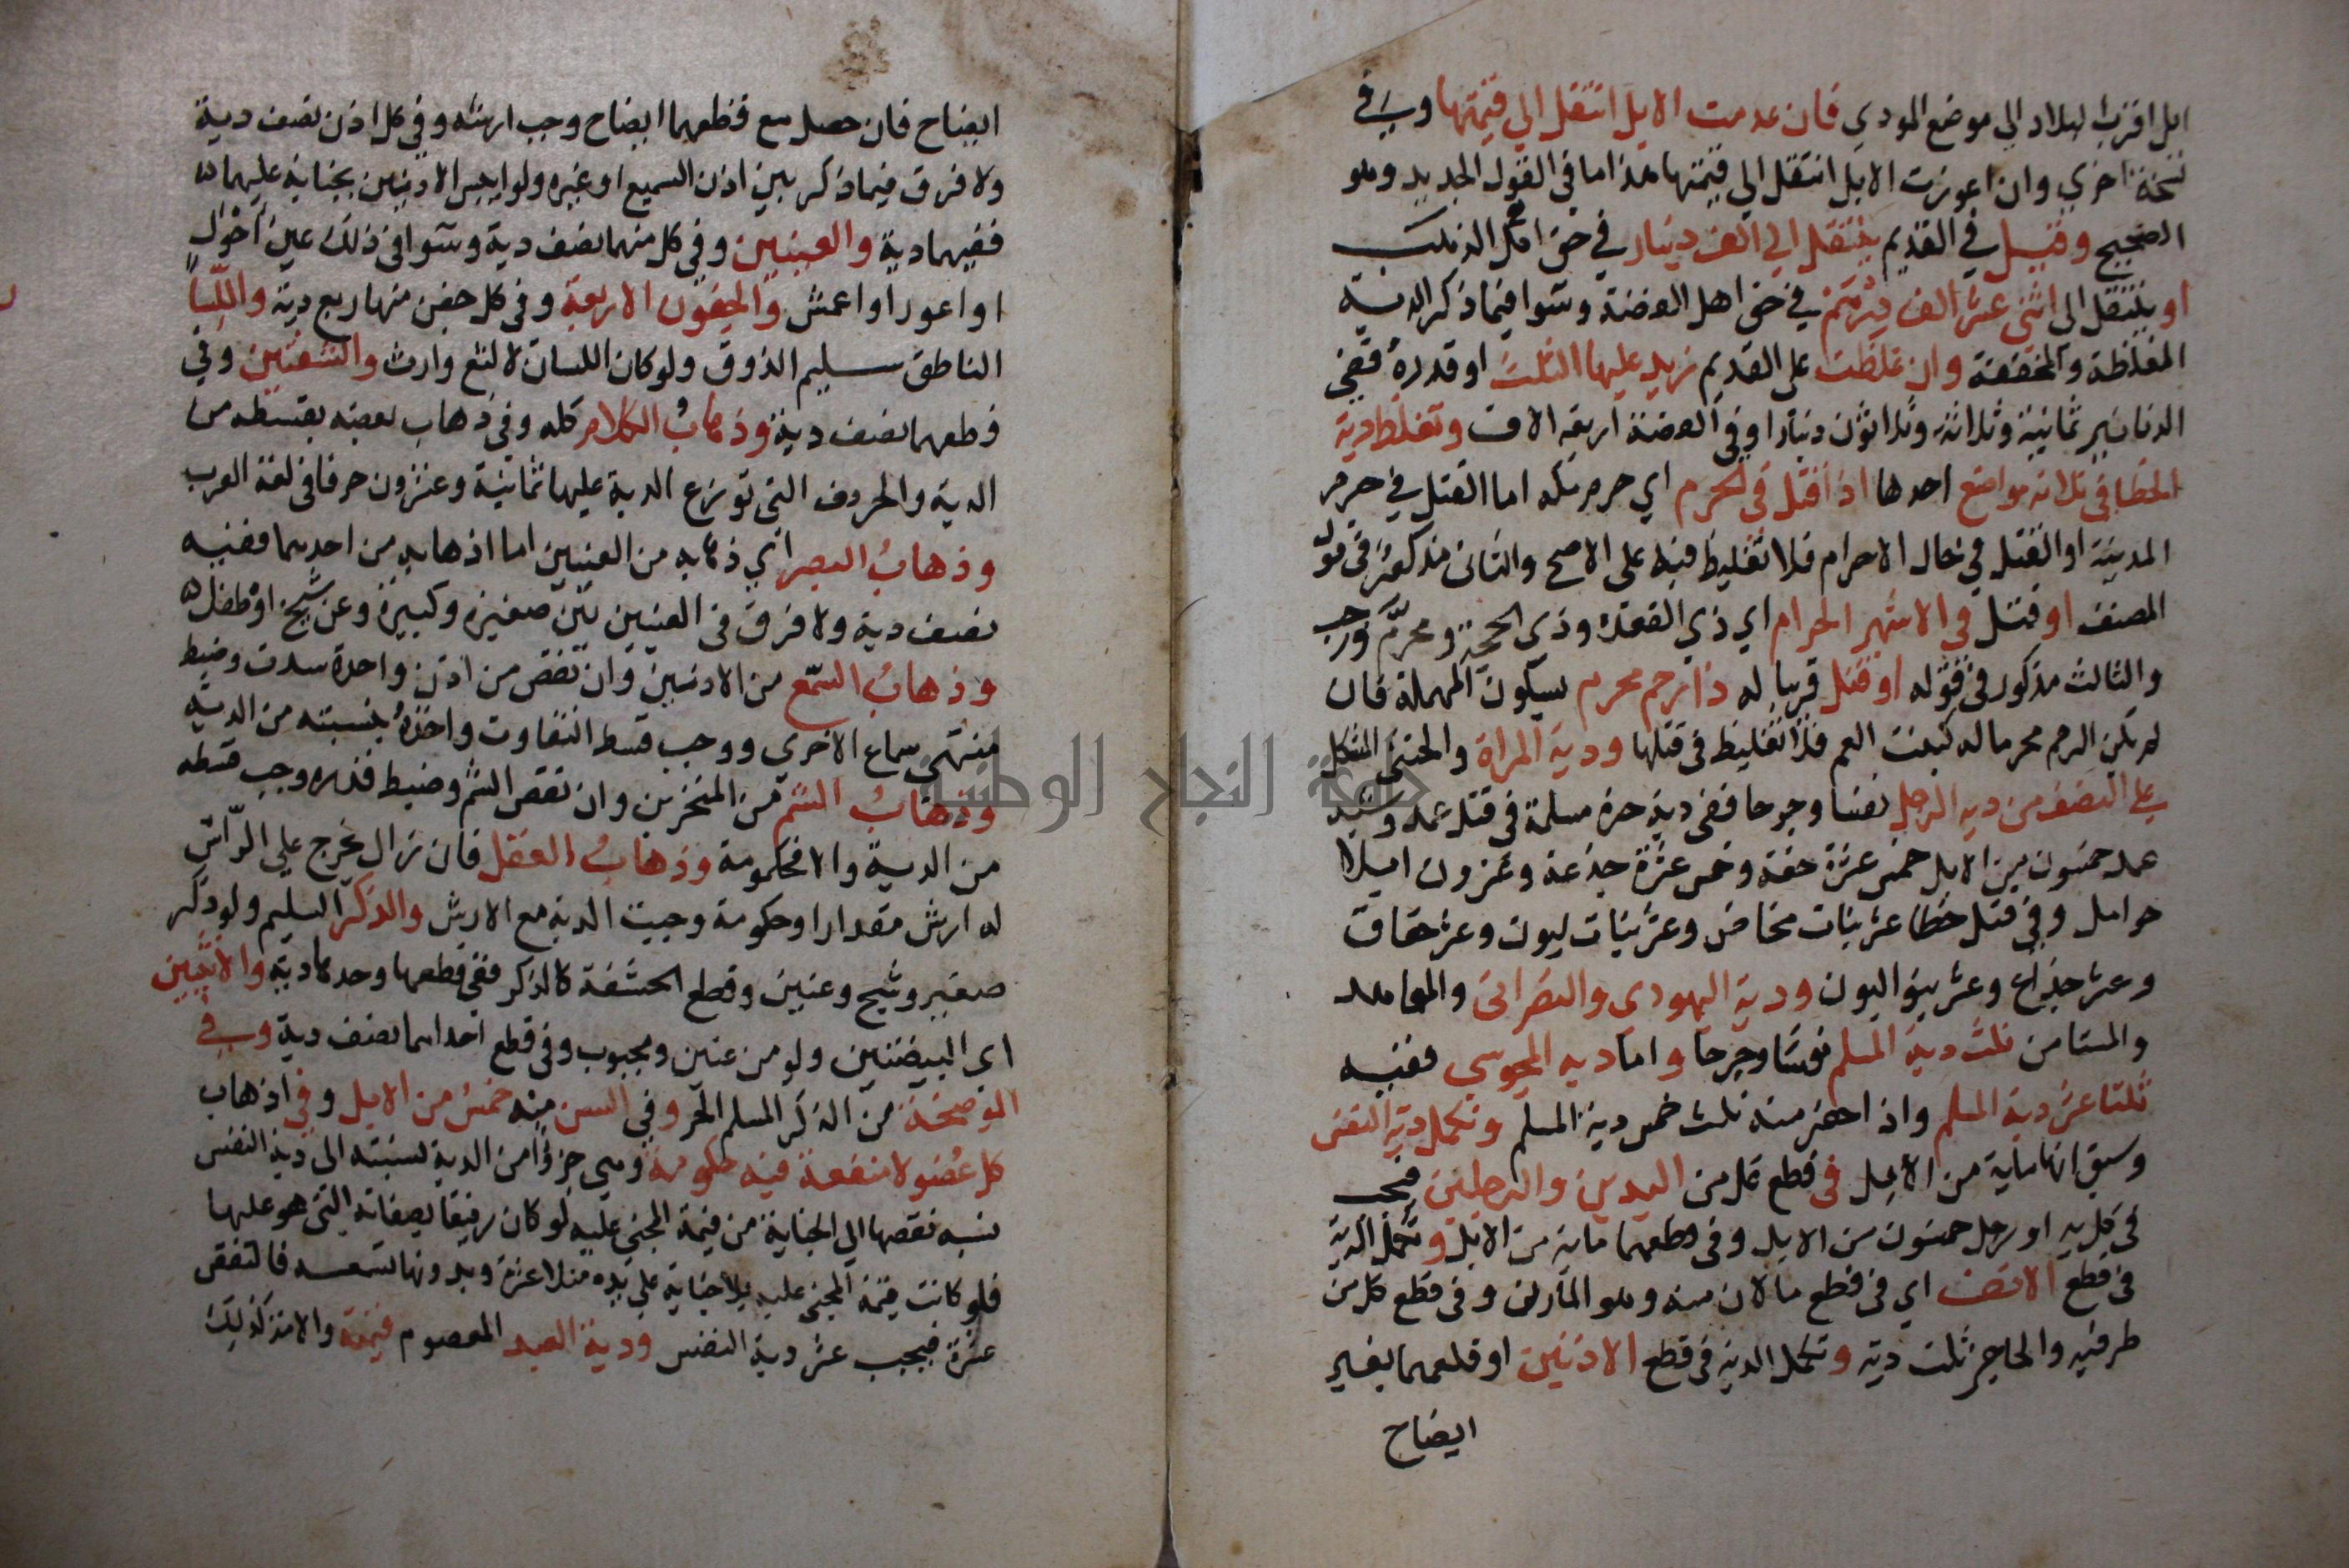 ابل اقرب البلاد الي موضع المودي فان عدمت الابل انتقل الي قيمتها وفي
نسخة اخري وان اعوزت الابل انتقل الي قيمتها هذا ما في القول الجديد وهو
الصحيح وقيل في القديم ينتقل الي الف دينار في حق اهل الذهب
او ينتقل الي اثني عشر الف درهم في حق اهل الفضة وسوا فيما ذكر الدية
المغلظة والمخففة وان غلظت على القديم زيد عليها الثلث او قدره ففي
الدنانير ثمانية وثلاثة وثلاثون دينارا وفي الفضة اربعة الاف وتغلظ دية
الخطا في ثلاثة مواضع احدها اذا قتل في الحرم اي حرم مكه اما القتل في حرم
المدينة او القتل في حال الاحرام فلا تغليظ فيه على الاصح والثاني مذكور في قول
المصنف او قتل في الاشهر الحرام اي ذي القعدة وذي الحجة ومحرم ورجب
والثالث مذكور في قوله او قتل قريبا له ذا رحم محرم بسكون المهملة فان
لم يكن الرحم محرما له كبنت العم فلا تغليظ في قتلها ودية المراة والخنثى المشكل
على النصف من دية الرجل نفسا وجرحا ففي دية حرة مسلمة في قتل عمد وشبه
عمد خمسون من الابل خمس عشرة حقة وخمس عشرة جذعة وعشرون ابلا
حوامل وفي قتل خطا عشر بنات مخاض وعشر بنات لبون وعشر حقاق
وعشر جذاع وعشر بنو البون ودية اليهودي والنصراني والمعاهد
والمستامن ثلث دية المسلم نفسا وجرحا واما دية المجوسي ففيه
ثلثا عشر دية المسلم واذا احضر منه ثلث خمس دية المسلم وتكمل دية النفس
وسبق انها ماية من الابل في قطع كل من اليدين والرجلين فيجب
في كل يد او رجل خمسون من الابل وفي قطعهما ماية من الابل وتكمل الدية
في قطع الانف اي في قطع ما لان منه وهو المارن وفي قطع كل من
طرفيه والحاجز ثلث دية وتكمل الدية في قطع الاذنين او قلعهما بغير
ايضاح
ايضاح فان حصل مع قطعهما ايضاح وجب ارشه وفي كل اذن نصف دية
ولا فرق فيما ذكر بين اذن السميع او غيره ولو ايبس الاذنين بجناية عليهما
ففيهما دية والعينين وفي كل منهما نصف دية وسوا في ذلك عين احول
او اعور او اعمش والجفون الاربعة وفي كل جفن منها ربع دية واللسان
الناطق سليم الذوق ولو كان اللسان لالثغ وارت والشفتين وفي
قطعهما نصف دية وذهاب الكلام كله وفي ذهاب بعضه بقسطه من
الدية والحروف التي توزع الدية عليها ثمانية وعشرون حرفا في لغة العرب
وذهاب البصر اي ذهابه من العينين اما اذهابه من احديهما ففيه
نصف دية ولا فرق في العينين بين صغيرة وكبيرة وعين شيخ او طفل
وذهاب السمع من الاذنين وان نقص من اذن واحدة سدت وضبط
منتهي سماع الاخري ووجب قسط التفاوت واخذ بنسبته من الدية
وذهاب الشم من المنخرين وان نقص الشم وضبط قدره وجب قسطه
من الدية والا فحكومة وذهاب العقل فان زال بجرح علي الراس
له ارش مقدار او حكومة وجبت الدية مع الارش والذكر السليم ولو ذكر
صغير وشيخ وعنين وقطع الحشفة كالذكر ففي قطعها وحدها دية والانثيين
اي البيضتين ولو من عنين ومجبوب وفي قطع احداهما نصف دية وفي
الموضحة من الذكر المسلم الحر وفي السن منه خمس من الابل وفي اذهاب
كل عضو لا منفعة فيه حكومة وهي جزؤ من الدية نسبته الى دية النفس
نسبه نقصها اي الجناية من قيمة المجني عليه لو كان رقيقا بصفاته التي هو عليها
فلو كانت قيمة المجني عليه بلا جناية علي يده مثلا عشرة وبدونها تسعه فالنقص
عشرة فيجب عشر دية النفس ودية العبد المعصوم قيمته والامة كذلك
جامعة النجاح الوطنية